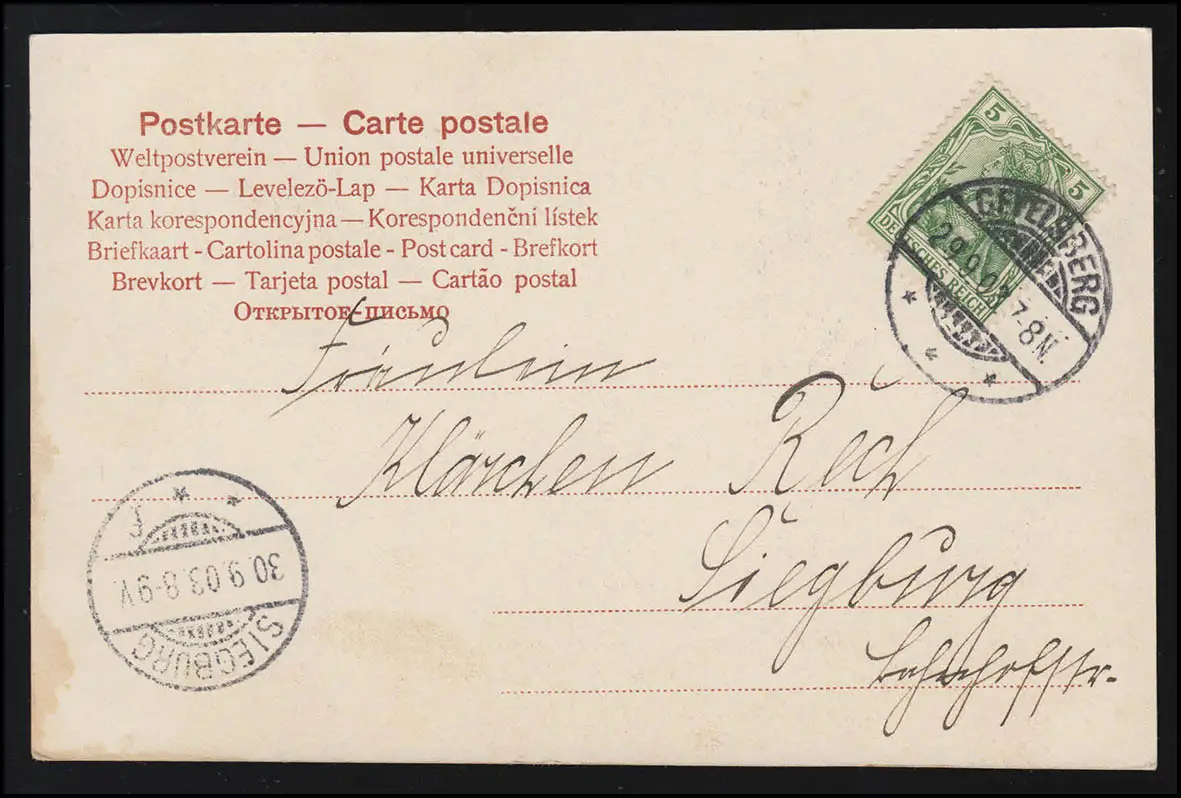 Postkarte — Carte postale
Weltpostverein — Union postale universelle
Dopisnice — Levelezö-Lap — Karta Dopisnica
Karta korespondencyjna — Korespondenční lístek
Briefkaart - Cartolina postale - Post card - Brefkort
Brevkort — Tarjeta postal — Cartão postal
Открытое-письмо
5 5
DEUTSCHES REICH
GEVELSBERG
29.9.03 7-8N.
Fräulein
Klärchen Rech
Siegburg
Bahnhofstr.
30.9.03.8-9V.
SIEGBURG